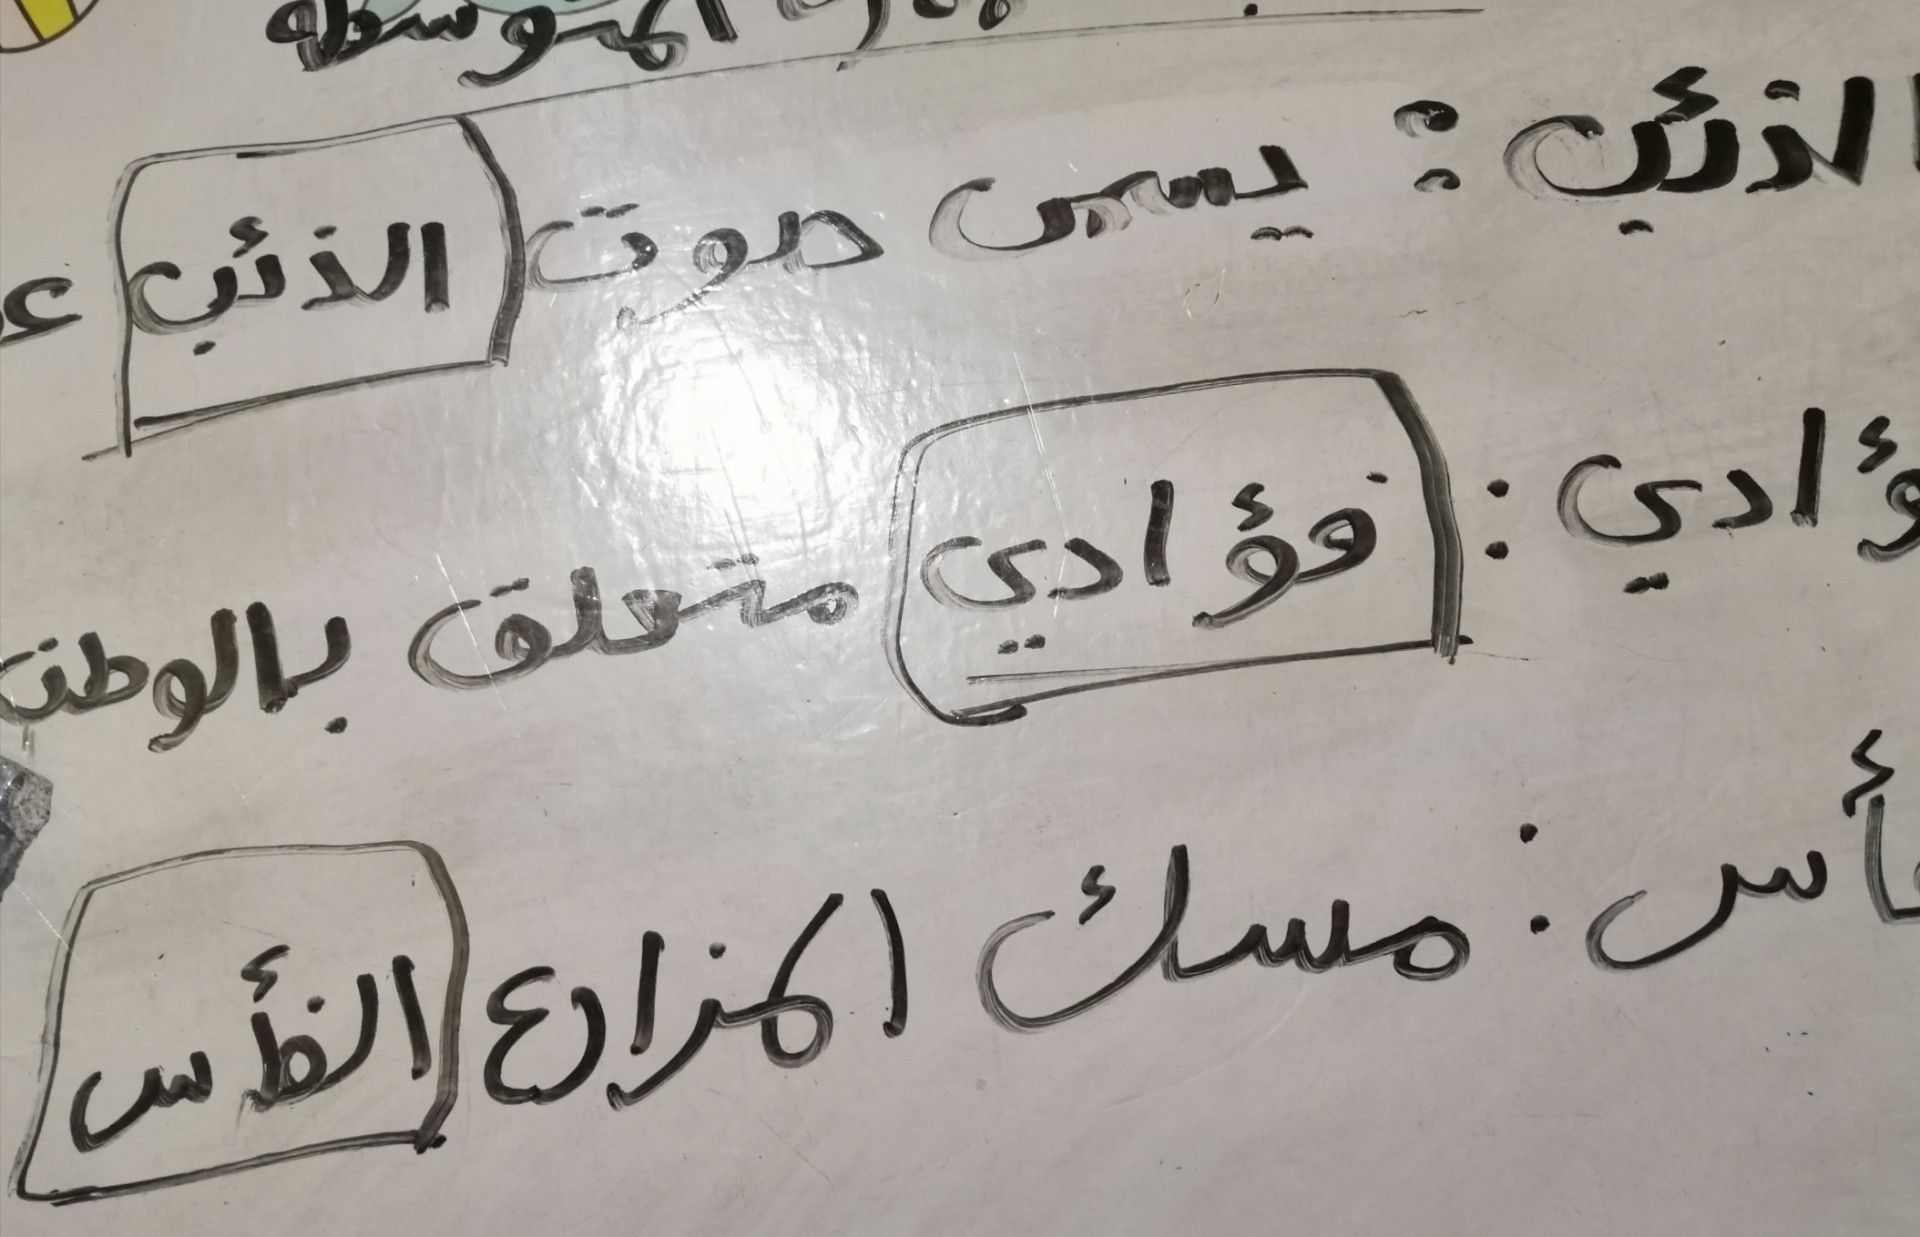 المتوسطة
الذئب : يسمى صوت الذئب
فؤادي : فؤادي متعلق بالوطن
فأس : مسك المزارع الفأس